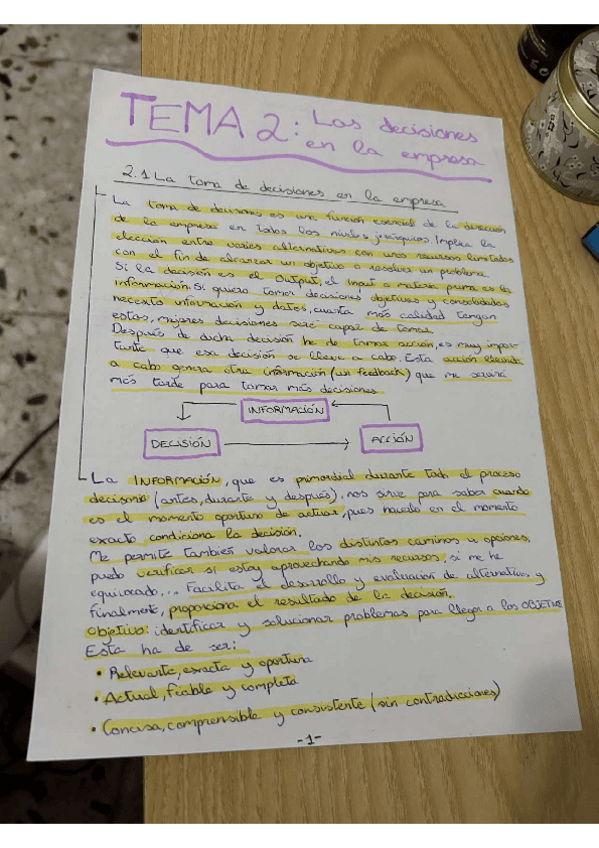 TEMA 2: Las decisiones
en la empresa
2.1 La toma de decisiones en la empresa
La toma de decisiones es una función esencial de la dirección
de la empresa en todos los niveles jerárquicos. Implica la
elección entre varias alternativas con unos recursos limitados
con el fin de alcanzar un objetivo o resolver un problema.
Si la decisión es el Output, el Input o materia prima es la
información. Si quiero tomar decisiones objetivas y consolidadas
necesito información y datos, cuanta más calidad tengan
estos, mejores decisiones seré capaz de tomar.
Después de dicha decisión he de tomar acción, es muy impor-
tante que esa decisión se lleve a cabo. Esta acción llevada
a cabo genera otra información (un feedback) que me servirá
más tarde para tomar más decisiones.
INFORMACIÓN
DECISIÓN
ACCIÓN
La INFORMACIÓN, que es primordial durante todo el proceso
decisorio (antes, durante y después), nos sirve para saber cuando
es el momento oportuno de actuar, pues hacerlo en el momento
exacto condiciona la decisión.
Me permite también valorar los distintos caminos u opciones,
puedo verificar si estoy aprovechando mis recursos, si me he
equivocado... Facilita el desarrollo y evaluación de alternativas y
finalmente, proporciona el resultado de la decisión.
Objetivo: identificar y solucionar problemas para llegar a los OBJETIVOS
Esta ha de ser:
• Relevante, exacta y oportuna
• Actual, fiable y completa
• Concisa, comprensible y consistente (sin contradicciones)
-1-